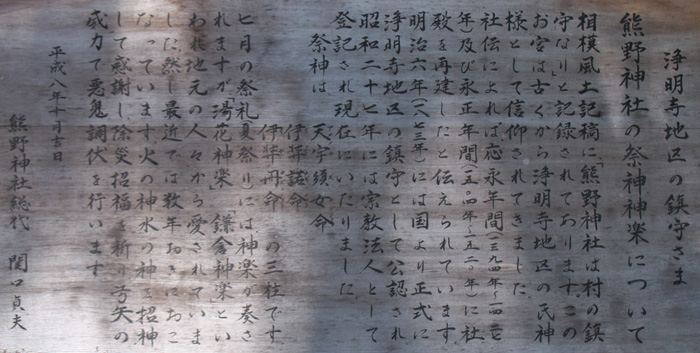 浄明寺地区の鎮守さま
熊野神社の祭神神楽について
相模風土記稿に「熊野神社は村の鎮
守なり」と記録されております。この
お宮は古くから浄明寺地区の氏神
様として信仰されてきました。
社伝によれば応永年間(一三九四年～一四二七
年)及び永正年間(一五〇四年～一五二〇年)に社
殿を再建したと伝えられています。
明治六年(一八七三年)には国より正式に
浄明寺地区の鎮守として公認され
昭和二十七年には宗教法人として
登記され現在にいたりました。
祭神は
天宇須女命
伊弉諾命
伊弉冊命
の三柱です
七月の祭礼(夏祭り)には神楽が奏さ
れますが「湯花神楽」「鎌倉神楽」とい
われ地元の人々から愛されていま
した。然し最近では数年おきにおこ
なっています。火の神水の神を招神
して感謝し、除災招福を祈り弓矢の
威力で悪鬼調伏を行います
平成八年十月吉日
熊野神社総代 関口貞夫